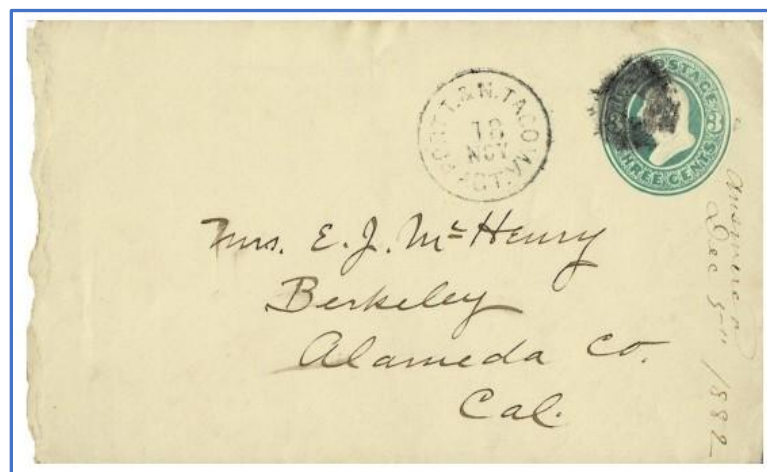 PORT T. & N. TACOMA AGT.
18
NOV
POSTAGE
THREE CENTS
Mrs. E. J. McHenry
Berkeley
Alameda Co.
Cal.
Answered
Dec 5" 1882